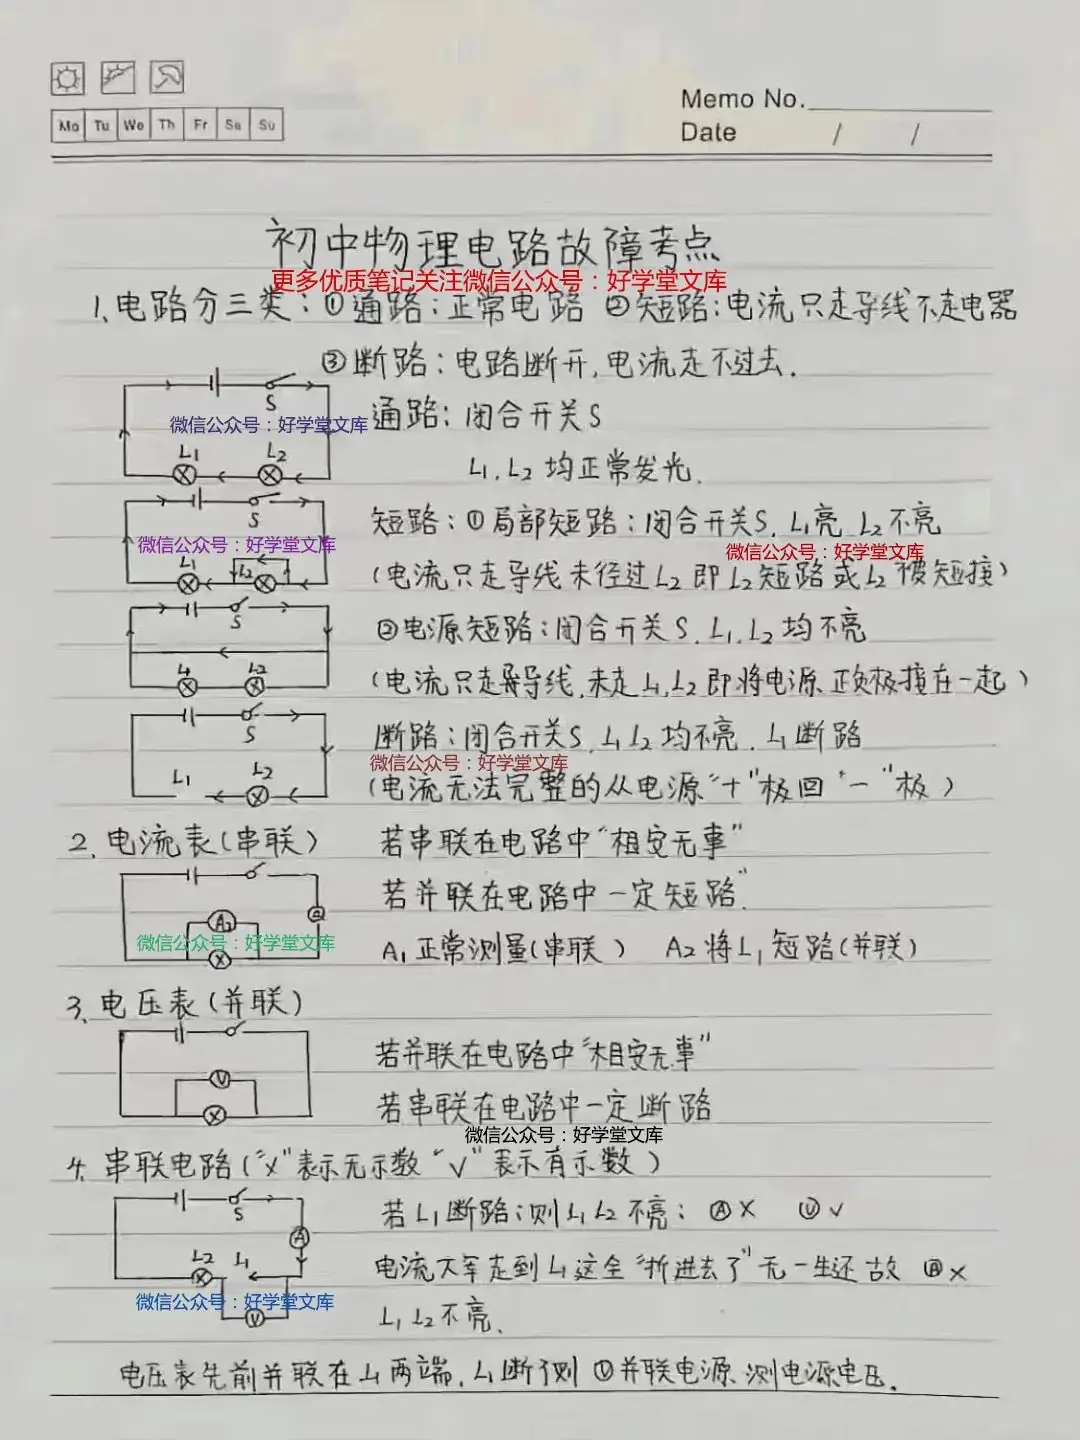 Memo No.
Mo Tu We Th Fr Sa Su
Date / /
初中物理电路故障考点
更多优质笔记关注微信公众号：好学堂文库
1、电路分三类：①通路：正常电路 ②短路：电流只走导线不走电器
③断路：电路断开，电流走不过去．
S
微信公众号：好学堂文库
通路：闭合开关S
L1 L2
L1、L2 均正常发光．
S
短路：①局部短路：闭合开关S、L1亮 L2不亮
微信公众号：好学堂文库
微信公众号：好学堂文库
L1 L2
（电流只走导线未径过L2 即L2短路或L2被短接）
S
②电源短路：闭合开关S、L1、L2均不亮
L1 L2
（电流只走导线，未走L1、L2即将电源正负极接在一起）
S
断路：闭合开关S、L1 L2均不亮．L1断路
微信公众号：好学堂文库
L1 L2
（电流无法完整的从电源“十”极回“一”极）
2、电流表（串联） 若串联在电路中“相安无事”
若并联在电路中一定短路”
A2
微信公众号：好学堂文库
A1正常测量（串联） A2将L1短路（并联）
3、电压表（并联）
若并联在电路中“相安无事”
V
若串联在电路中一定断路
微信公众号：好学堂文库
4、串联电路（“x”表示无示数“√”表示有示数）
S
若L1断路；则L1 L2不亮： Ⓐ× Ⓥ√
A
L2 L1
电流大军走到L1这全“折进去了”无一生还故 Ⓐ×
微信公众号：好学堂文库
V
L1 L2不亮、
电压表先前并联在L1两端，L1断了则Ⓥ并联电源 测电源电压．